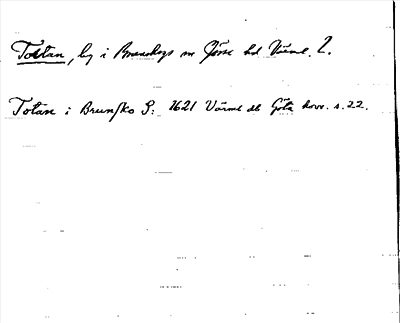 Totan, by i Brunskogs sn Jösse hd Värml. L.
Totan i Brunsko S: 1621 Värml db Göta hovr. s. 22.